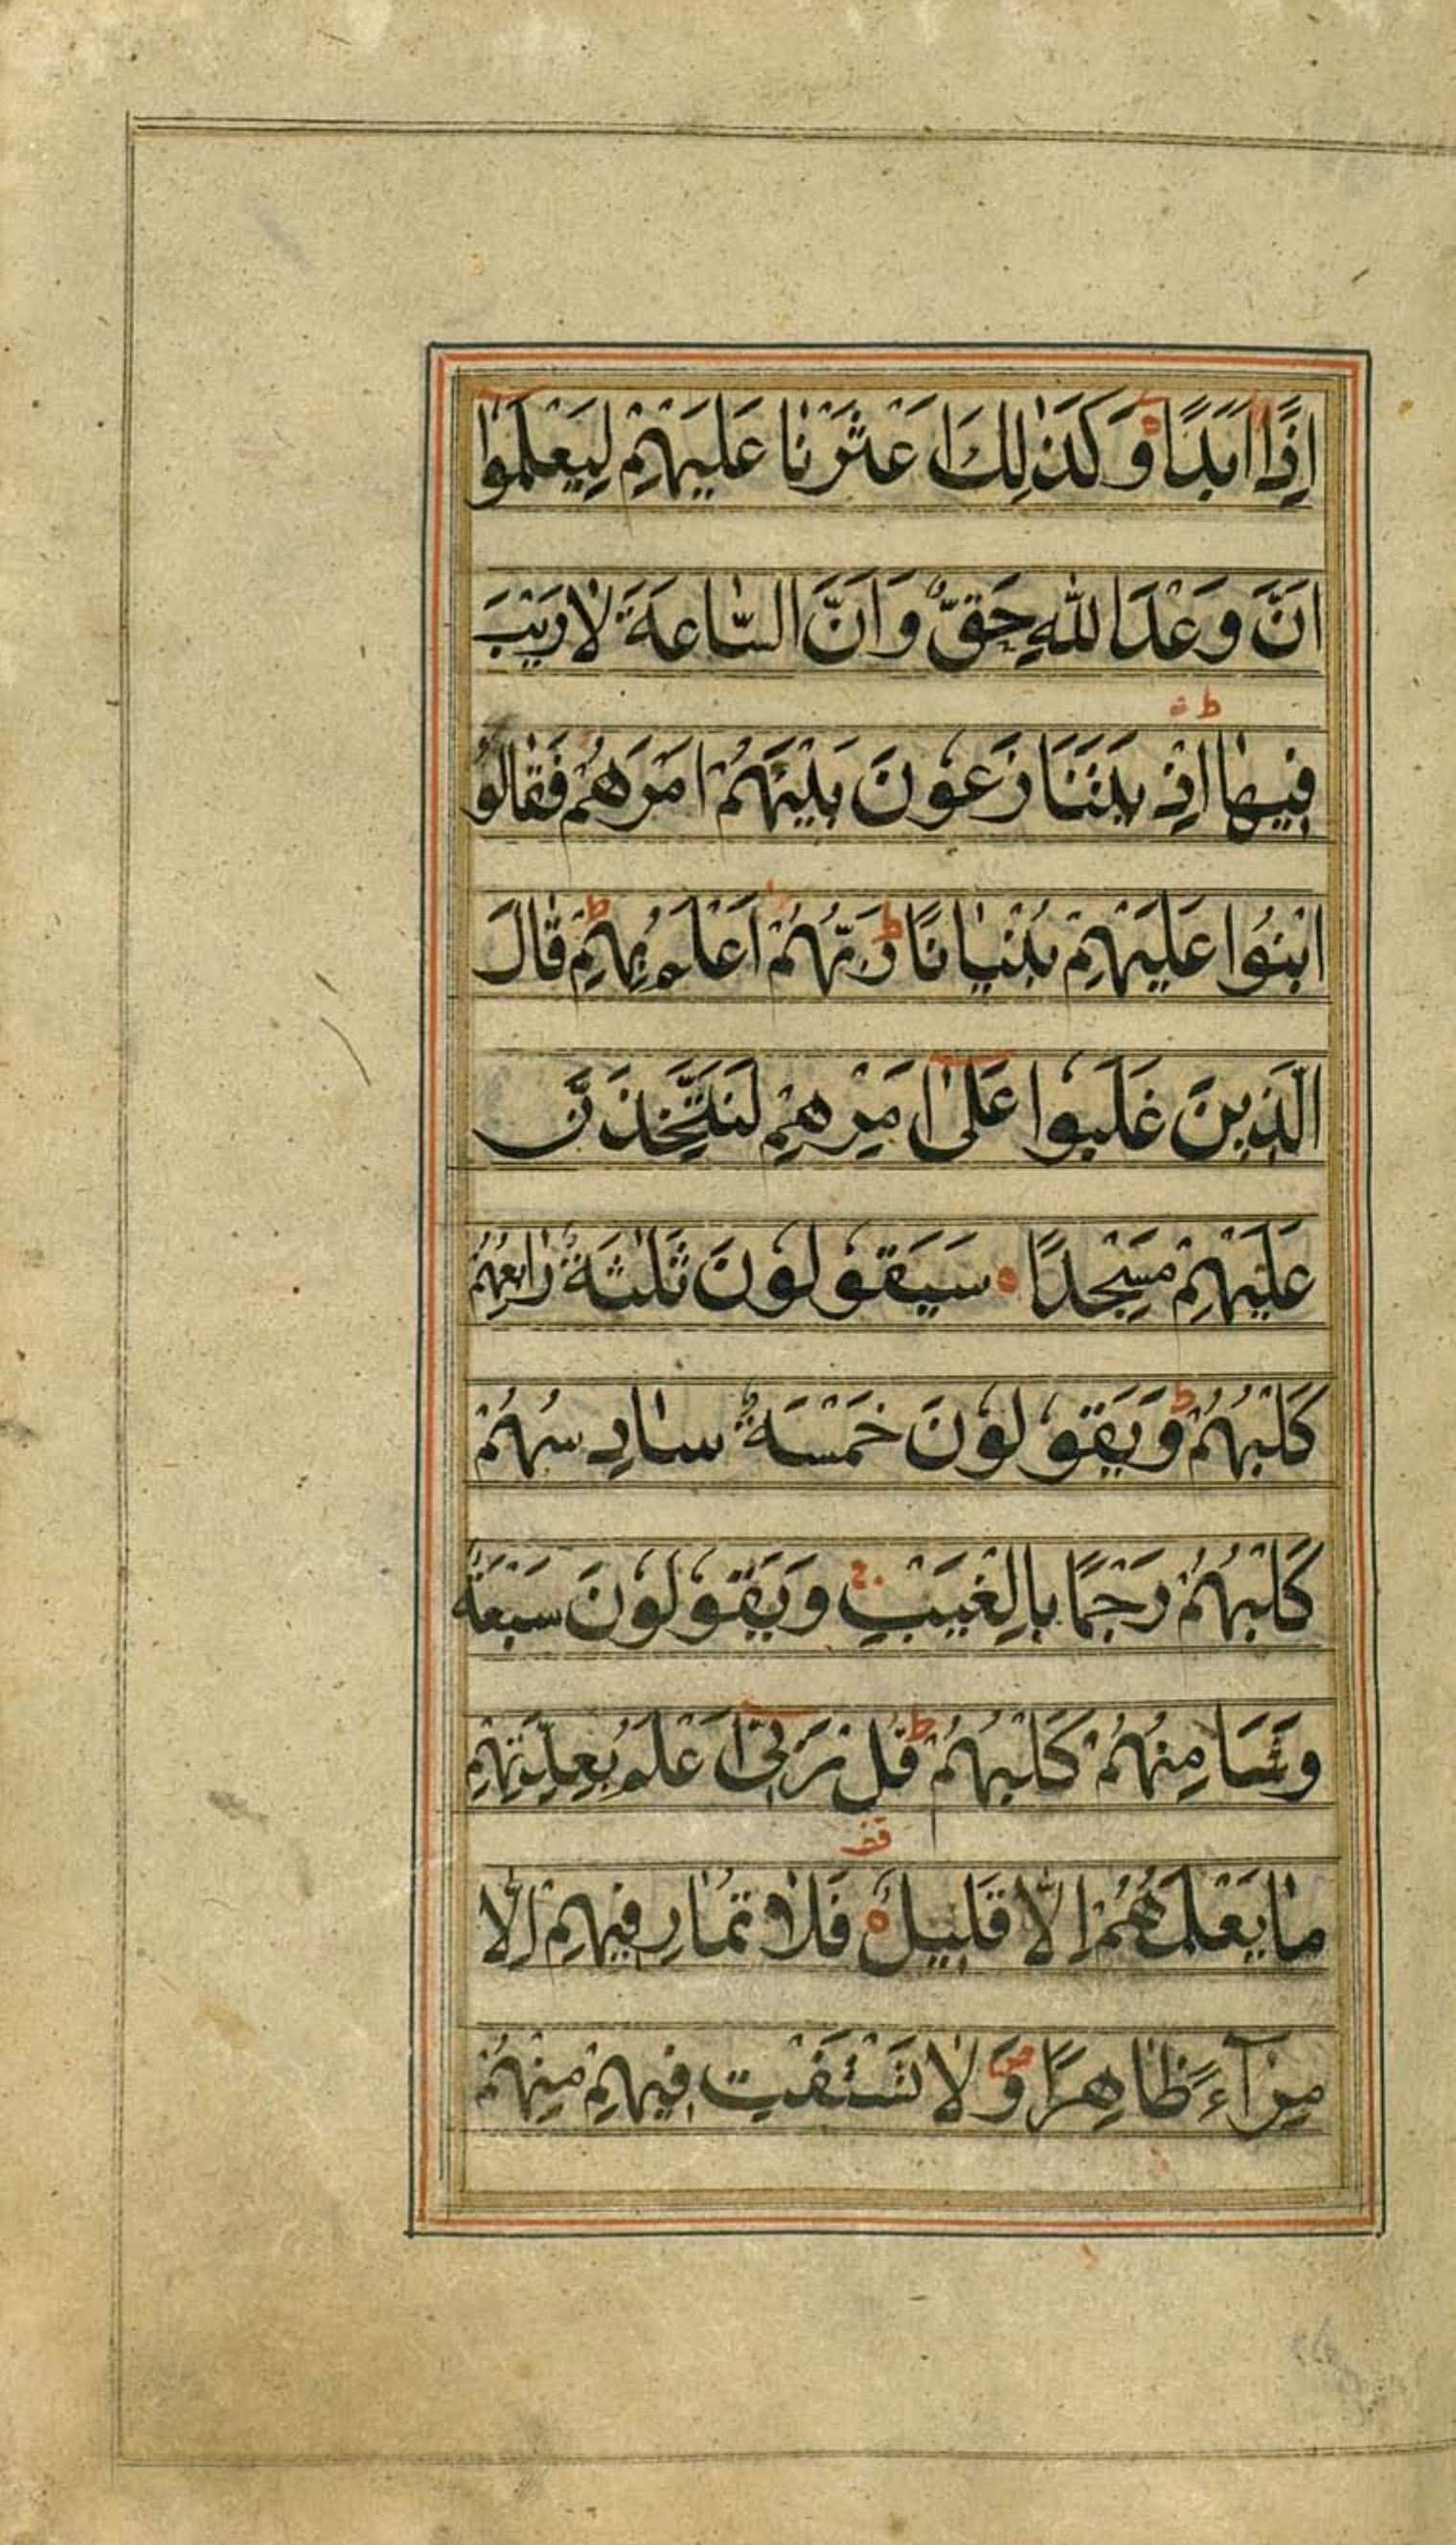 اِذًا اَبَدًا وَكَذٰلِكَ اَعْثَرْنٰا عَلَيْهِمْ لِيَعْلَمُوٓا
اَنَّ وَعْدَ اللّٰهِ حَقٌّ وَاَنَّ السّٰاعَةَ لٰا رَيْبَ
فِيهٰا ط اِذْ يَتَنٰازَعُونَ بَيْنَهُمْ اَمْرَهُمْ فَقٰالُوا
ابْنُوا عَلَيْهِمْ بُنْيٰانًا ط رَبُّهُمْ اَعْلَمُ بِهِمْ ط قٰالَ
الَّذِينَ غَلَبُوا عَلٰٓى اَمْرِهِمْ لَنَتَّخِذَنَّ
عَلَيْهِمْ مَسْجِدًا سَيَقُولُونَ ثَلٰثَةٌ رٰابِعُهُمْ
كَلْبُهُمْ ط وَيَقُولُونَ خَمْسَةٌ سٰادِسُهُمْ
كَلْبُهُمْ رَجْمًا بِالْغَيْبِ ج وَيَقُولُونَ سَبْعَةٌ
وَثٰامِنُهُمْ كَلْبُهُمْ ط قُلْ رَبِّىٓ اَعْلَمُ بِعِدَّتِهِمْ
مٰا يَعْلَمُهُمْ اِلّٰا قَلِيلٌ قف فَلٰا تُمٰارِ فِيهِمْ اِلّٰا
مِرَآءً ظٰاهِرًا ص وَلٰا تَسْتَفْتِ فِيهِمْ مِنْهُمْ